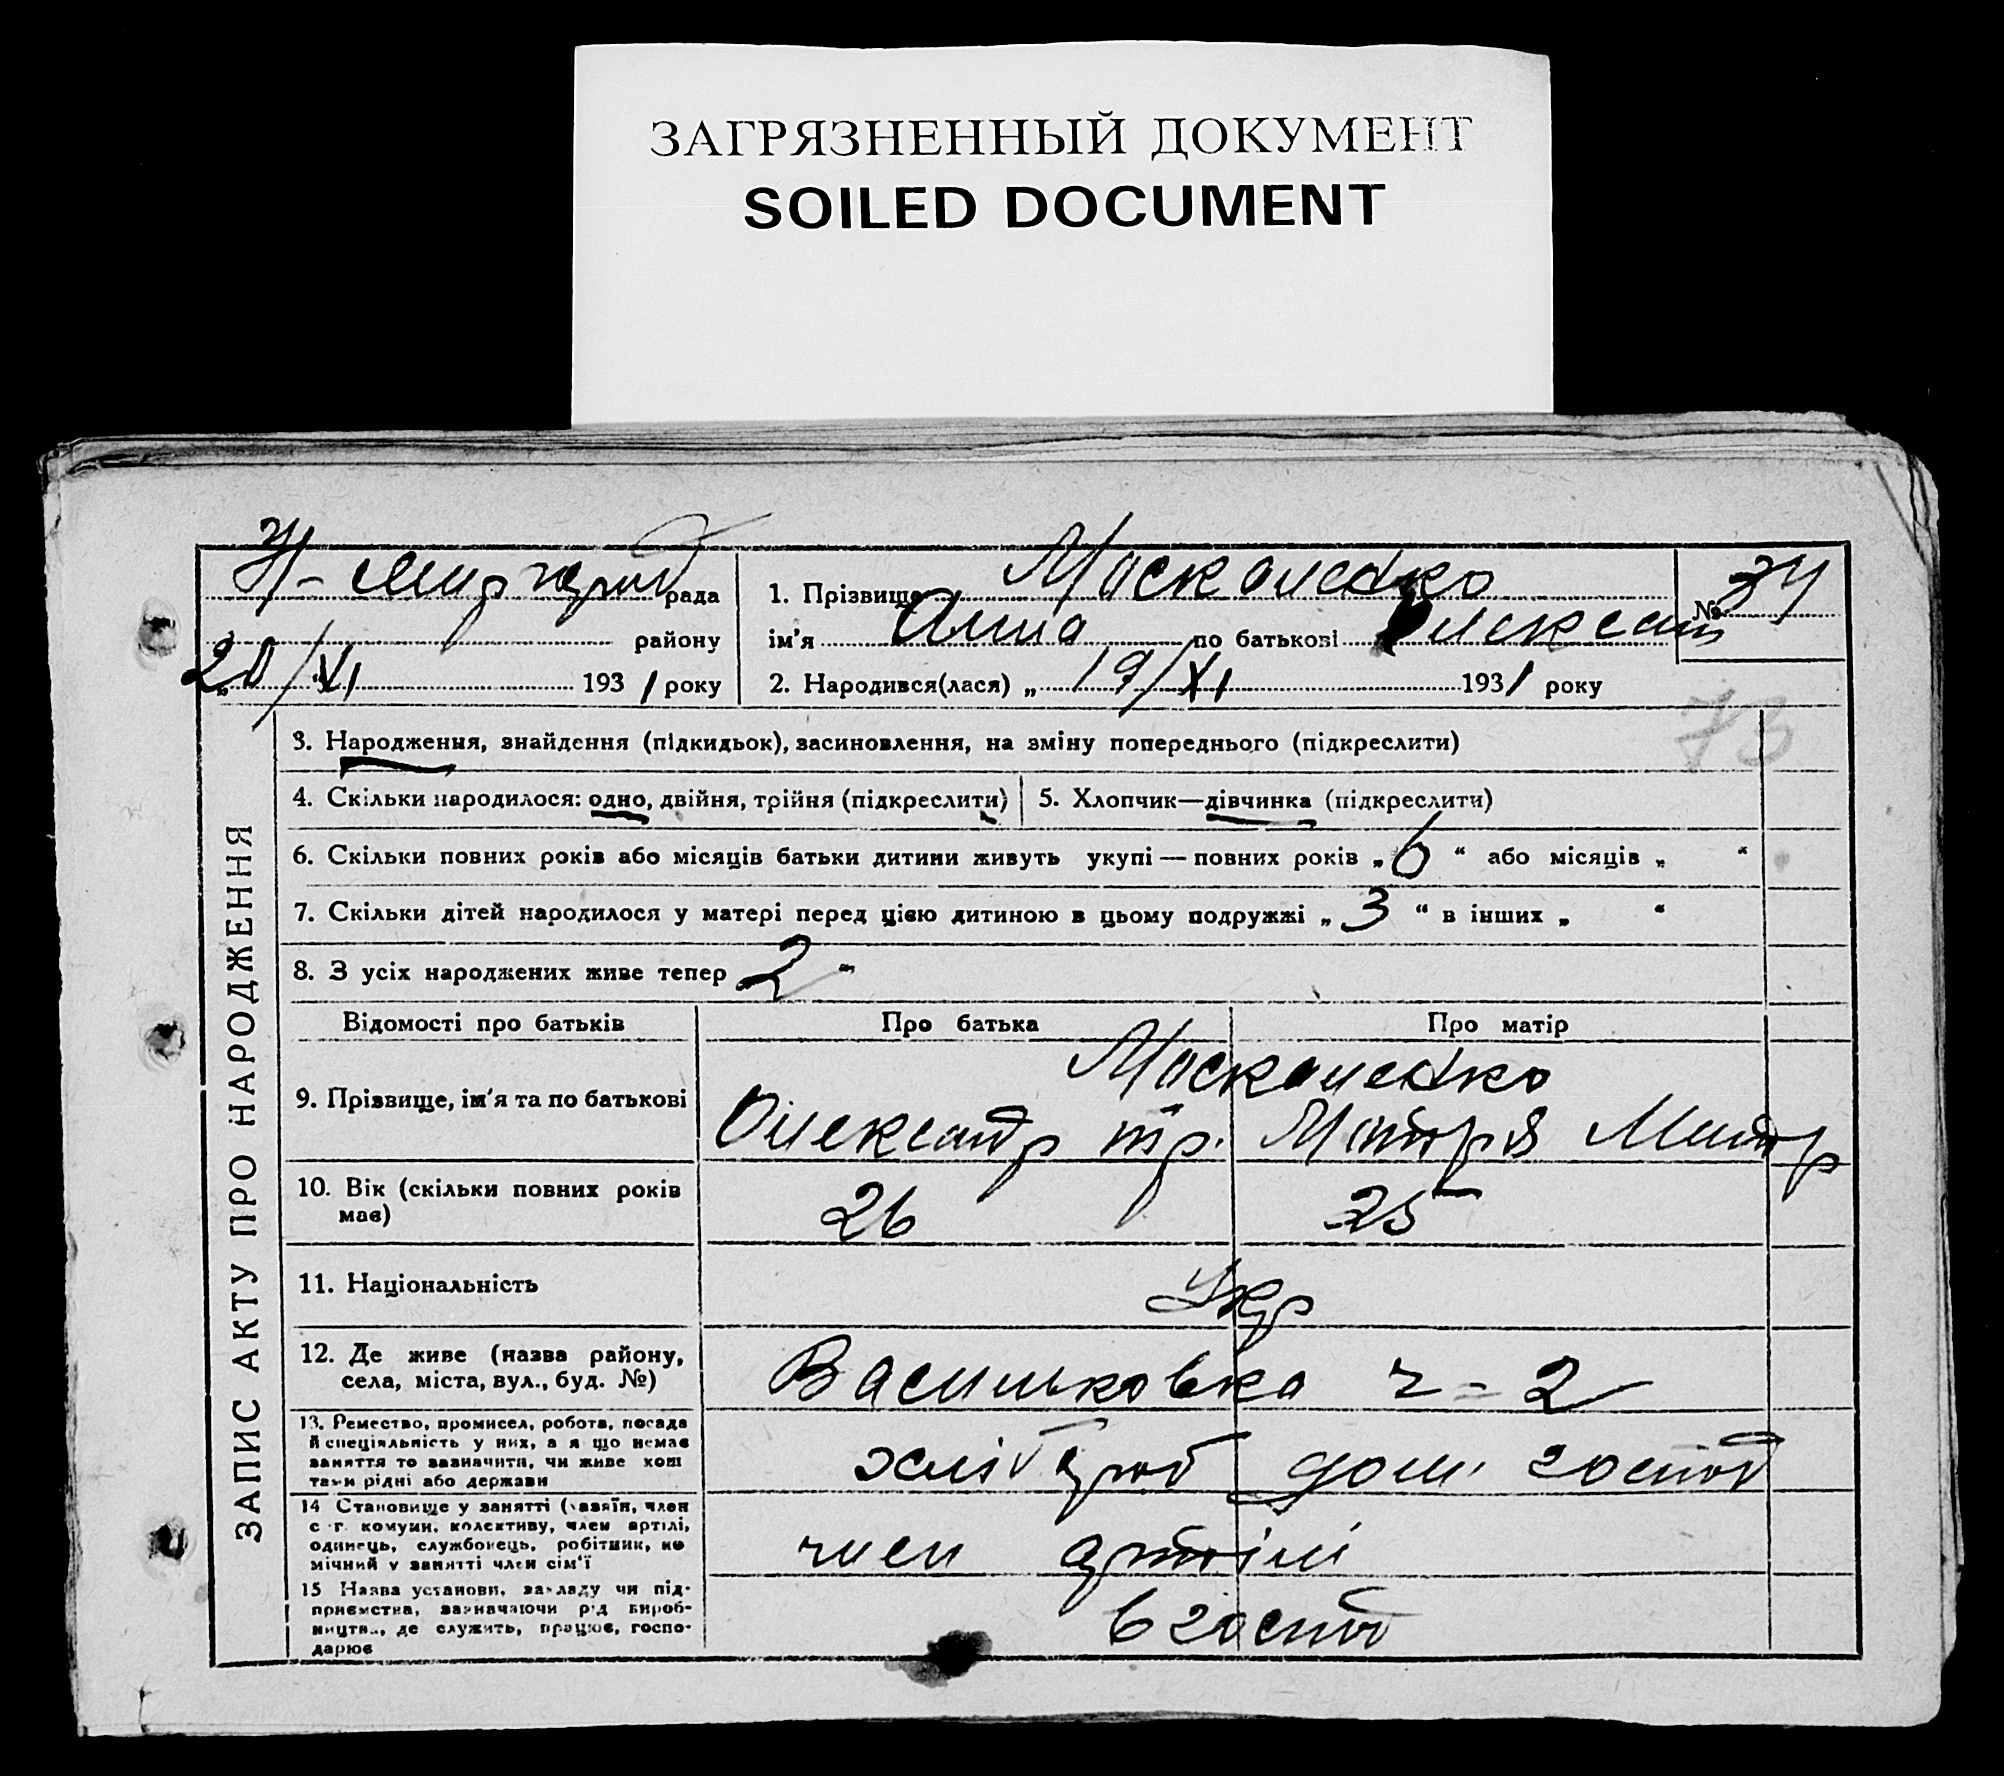 ЗАГРЯЗНЕННЫЙ ДОКУМЕНТ
SOILED DOCUMENT
Н-Миргород рада
району
20/XI 1931 року
1. Прізвище Москаленко
ім'я Анна по батькові Олександ
№ 34
2. Народився(лася) „ 19/XI 1931 року
73
ЗАПИС АКТУ ПРО НАРОДЖЕННЯ
3. Народження, знайдення (підкидьок), засиновлення, на зміну попереднього (підкреслити)
4. Скільки народилося: одно, двійня, трійня (підкреслити) 5. Хлопчик—дівчинка (підкреслити)
6. Скільки повних років або місяців батьки дитини живуть укупі — повних років „ 6 “ або місяців „ “
7. Скільки дітей народилося у матері перед цією дитиною в цьому подружжі „ 3 “ в інших „ “
8. З усіх народжених живе тепер 2 “
Відомості про батьків Про батька Про матір
9. Прізвище, ім'я та по батькові
Москаленко
Олександр тр. Мотря Митр
10. Вік (скільки повних років має) 26 25
11. Національність Укр
12. Де живе (назва району, села, міста, вул., буд. №) Васильковка ч-2
13. Ремество, промисел, робота, посада й спеціяльність у них, а я що немає заняття то зазначити, чи живе кош тами рідні або держави
хлібороб дом. господ
14 Становище у занятті (хазяїн, член с г. комуни, колективу, член артілі, одинець, службовець, робітник, помічний у занятті член сім'ї
член артілі
15 Назва установи, закладу чи підприємства, зазначаючи рід виробництва, де служить, працює, господарює
в господ